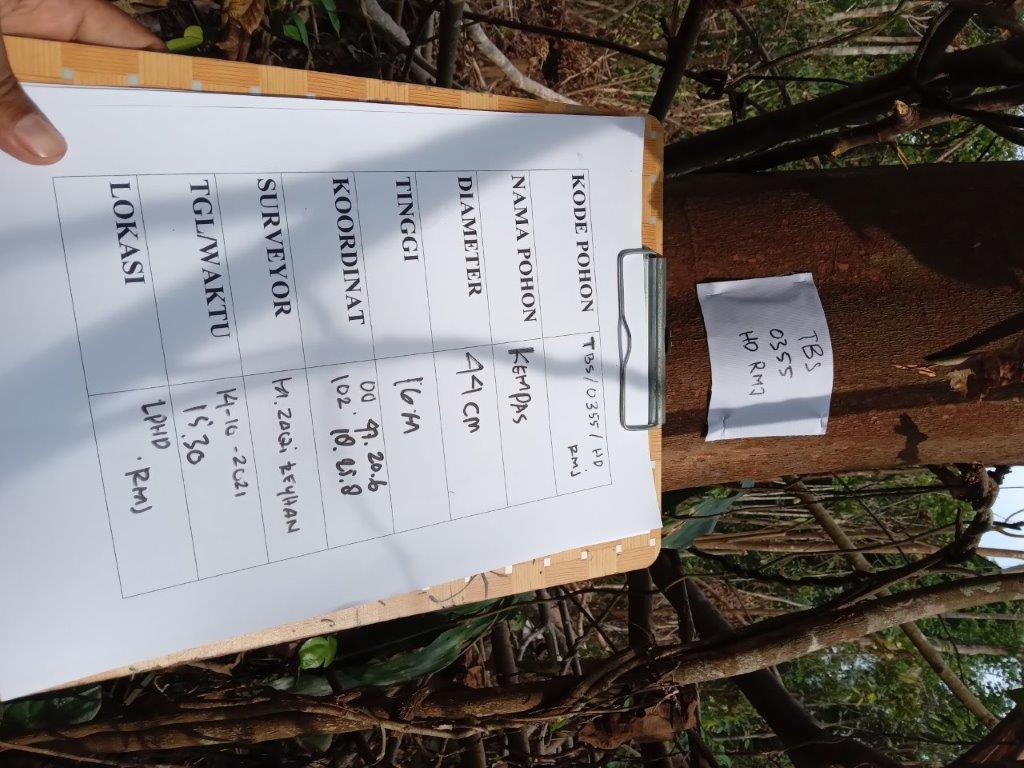 TBS
0355
HD RMJ
KODE POHON TBS/0355/HD
RMJ
NAMA POHON KEMPAS
DIAMETER 44 CM
TINGGI 16 M
KOORDINAT 00 47. 20.6
102. 10. 25.8
SURVEYOR M. ZAQi REYHAN
TGL/WAKTU 14-10-2021
15.30
LOKASI LPHD
. RMJ